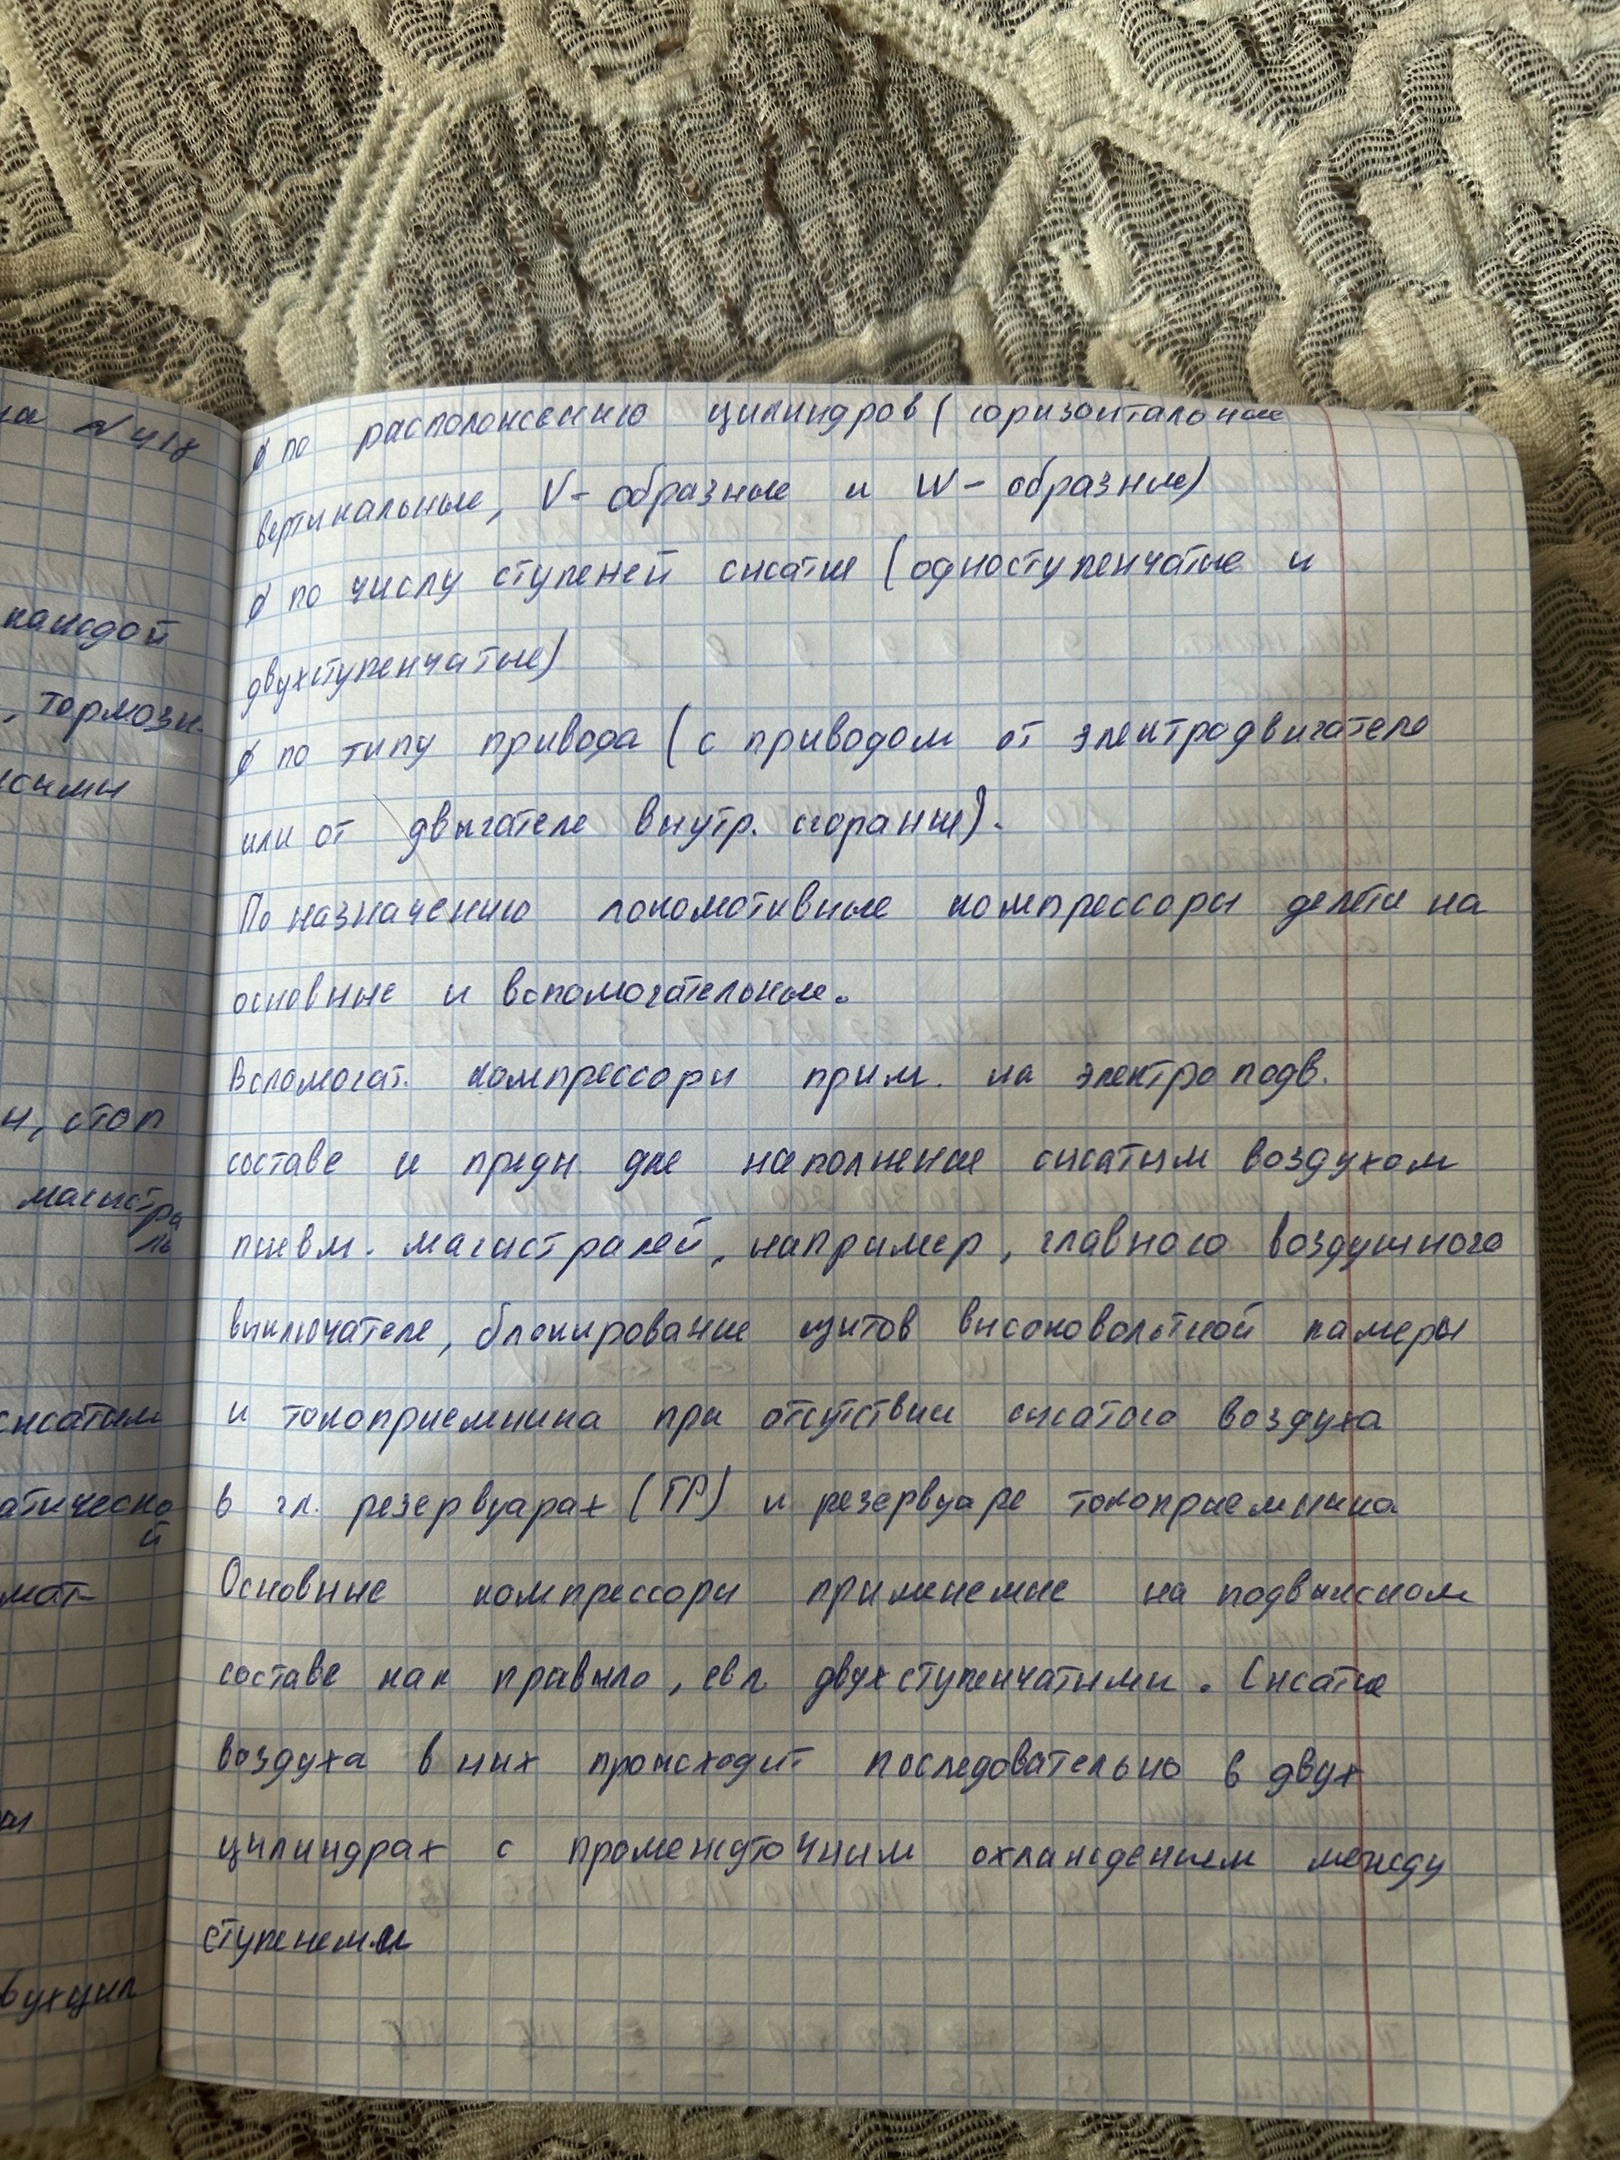 на №418
каждой
, тормозн.
ксимы
н, стоп
магистра
ль
сжатым
атическо
й
мат
ы
вухцил
∅ по расположению цилиндров (горизонтальные
вертикальные, V-образные и W-образные)
∅ по числу ступеней сжатие (одноступенчатые и
двухступенчатые)
∅ по типу привода (с приводом от электродвигателя
или от двигателя внутр. сгорания).
По назначению локомотивные компрессоры делятся на
основные и вспомогательные.
Вспомогат. компрессоры прим. на электроподв.
составе и предн для наполнения сжатым воздухом
пневм. магистралей, например, главного воздушного
выключателя, блокирование щитов высоковольтной камеры
и токоприемника при отсутствии сжатого воздуха
в гл. резервуарах (ГР) и резервуаре токоприемника
Основные компрессоры применяемые на подвижном
составе как правило, явл двухступенчатыми. Сжатие
воздуха в них происходит последовательно в двух
цилиндрах с промежуточным охлаждением между
ступенями